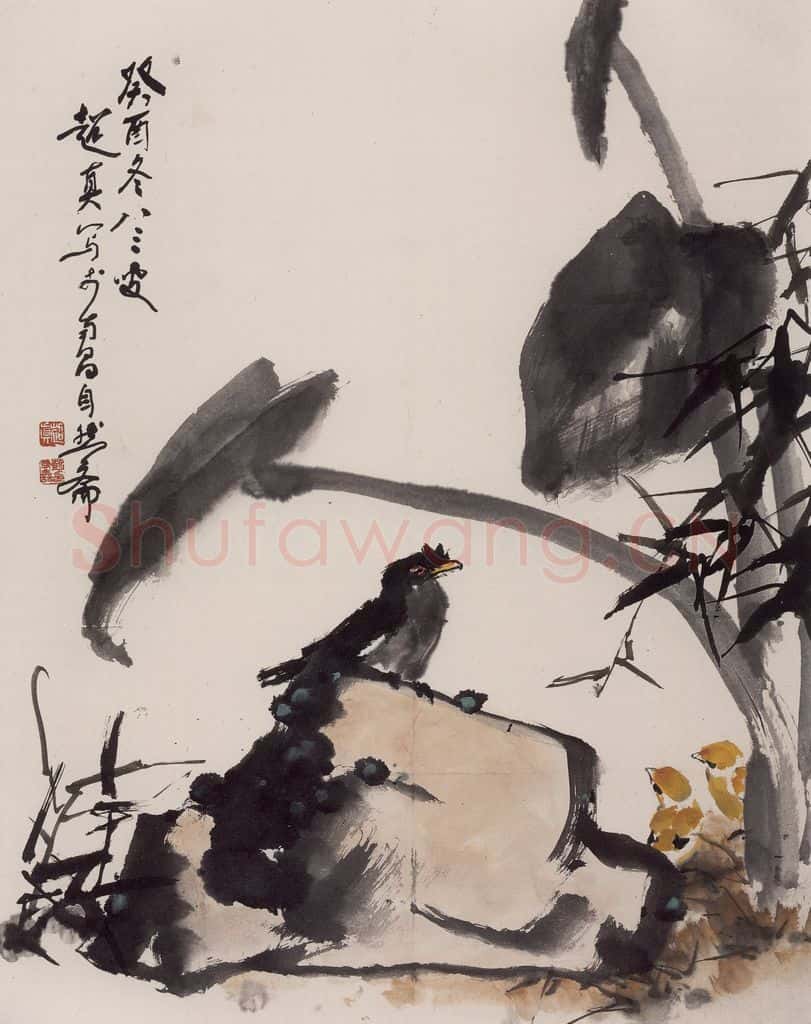 癸酉冬八三叟
超真写于南昌自然斋
Shufawang.CN